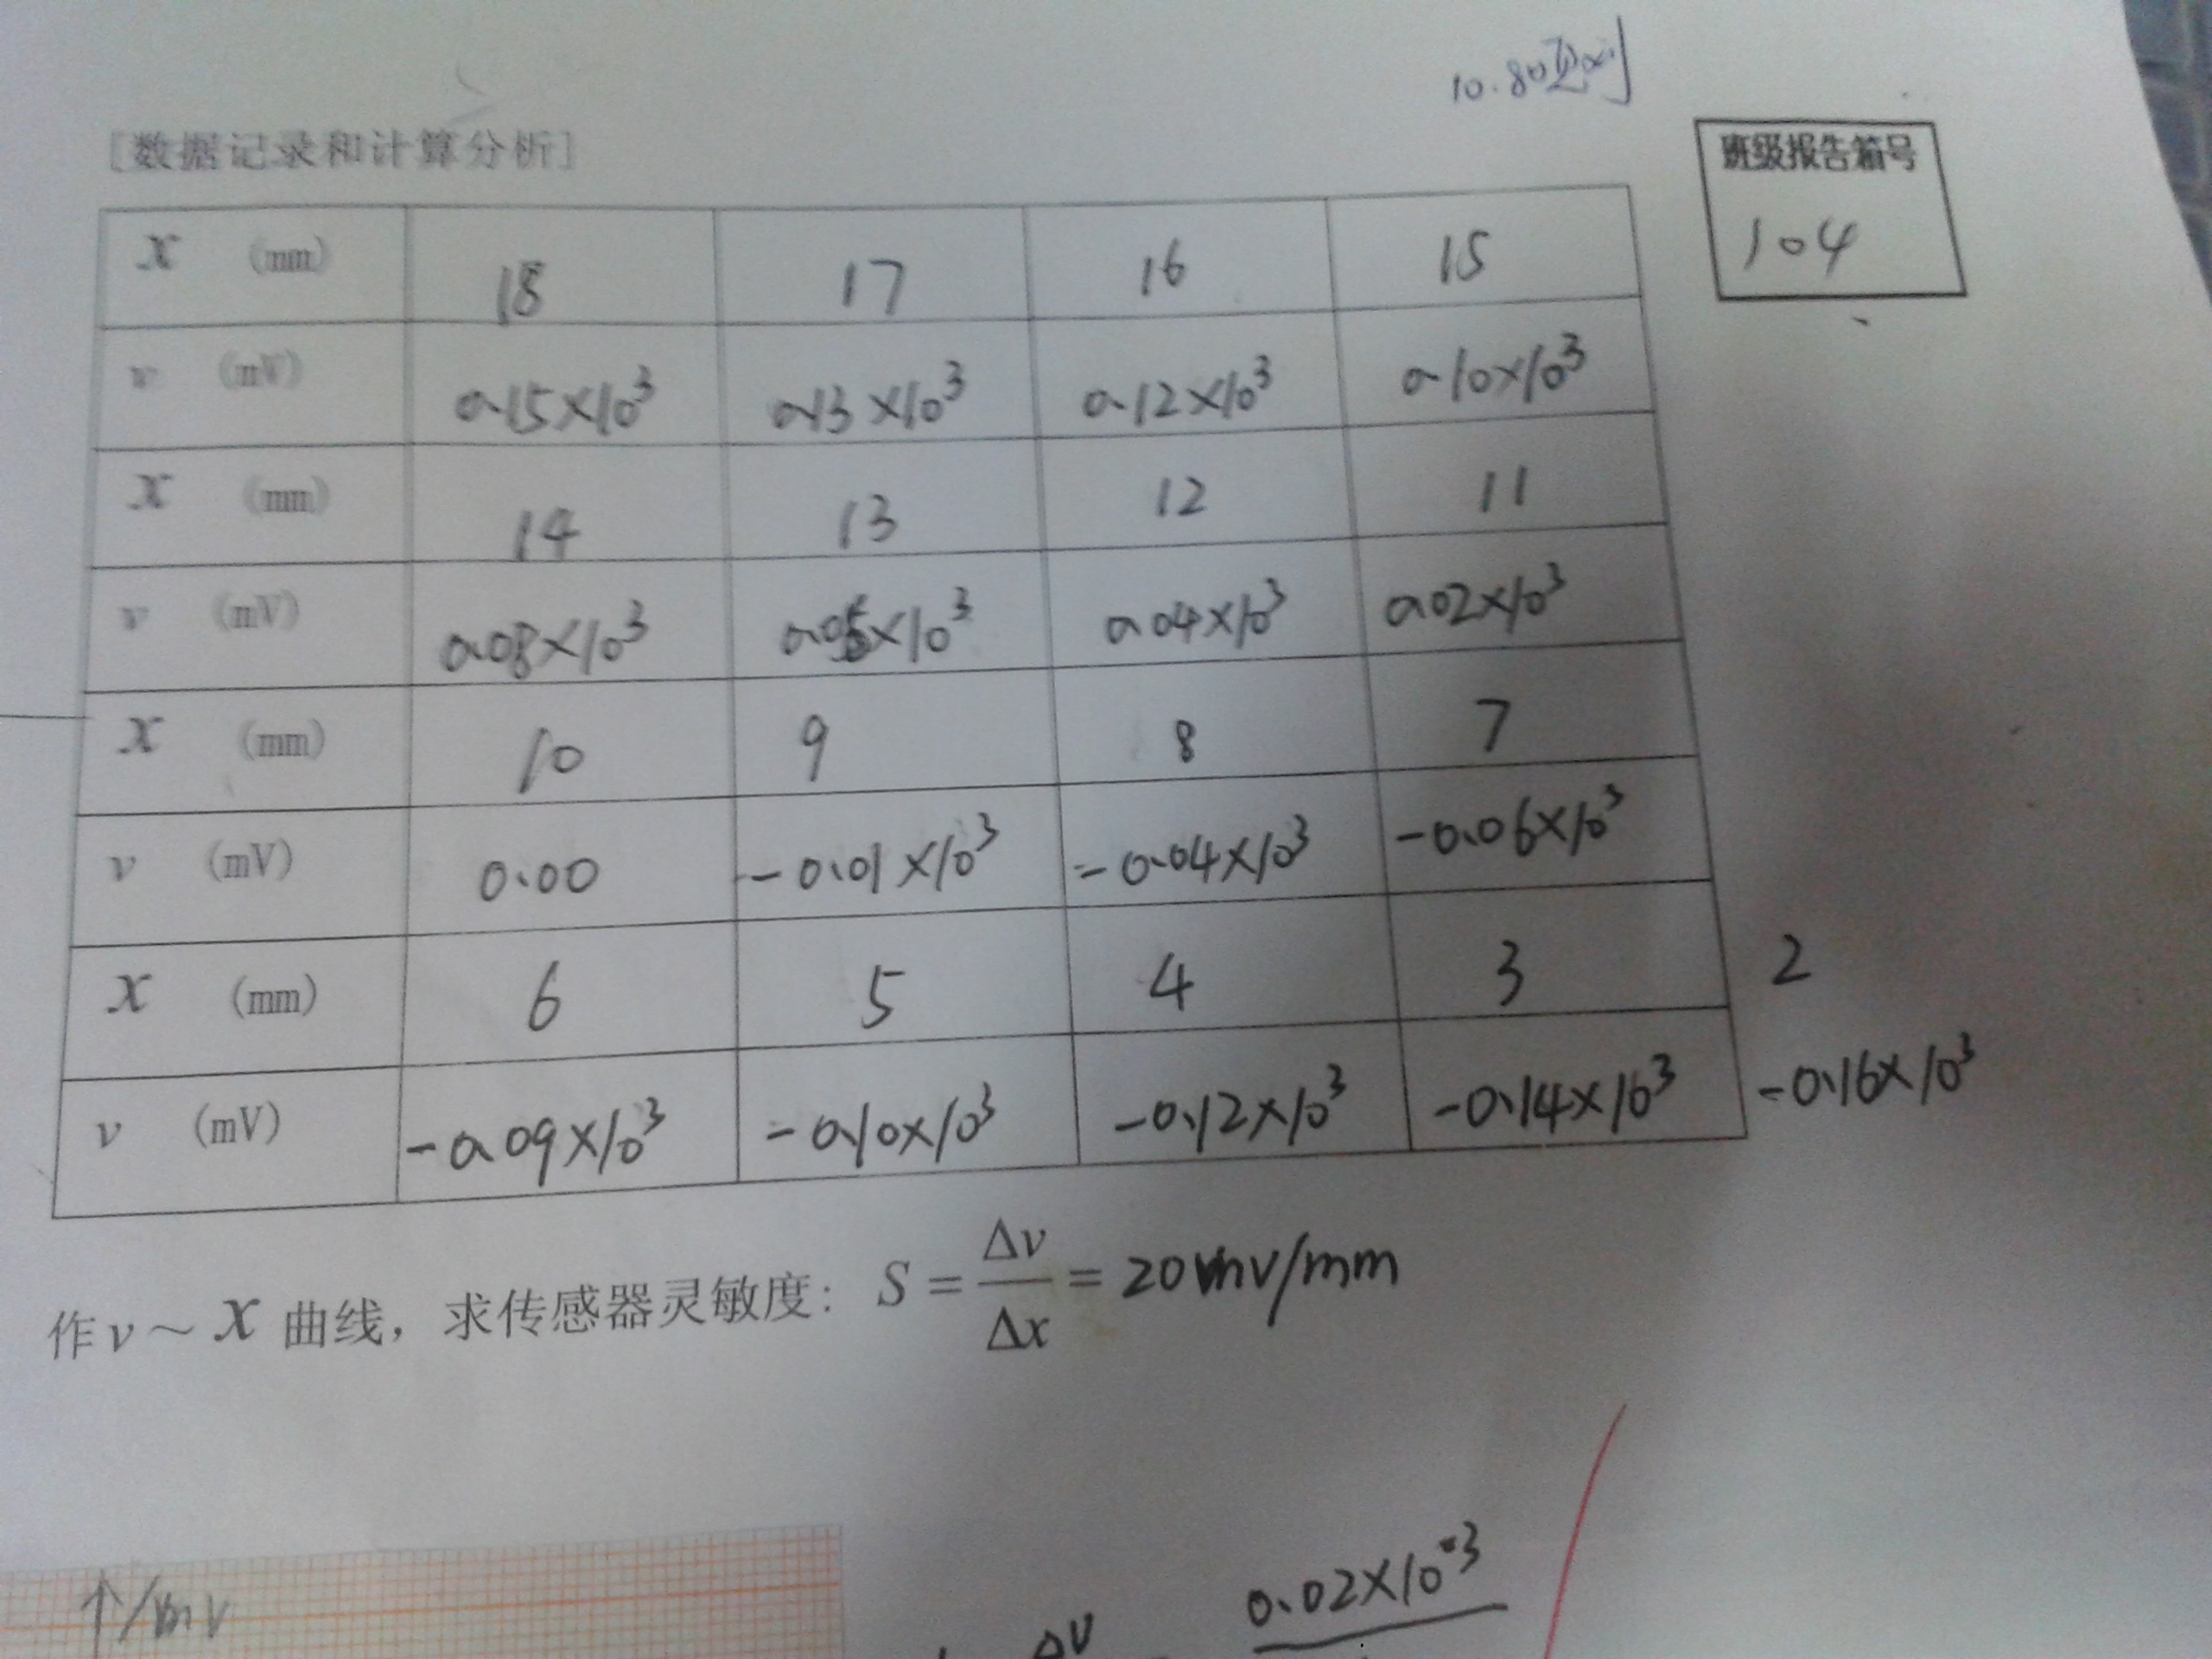 10.80
[数据记录和计算分析]
班级报告箱号
104
x (mm) 18 17 16 15
v (mV) 0.15×10³ 0.13×10³ 0.12×10³ 0.10×10³
x (mm) 14 13 12 11
v (mV) 0.08×10³ ×10³ 0.04×10³ 0.02×10³
x (mm) 10 9 8 7
v (mV) 0.00 -0.01×10³ -0.04×10³ -0.06×10³
x (mm) 6 5 4 3 2
v (mV) -0.09×10³ -0.10×10³ -0.12×10³ -0.14×10³ -0.16×10³
作v～x曲线，求传感器灵敏度：S = Δv/Δx = 20mv/mm
0.02×10⁻³
/mv
ΔV